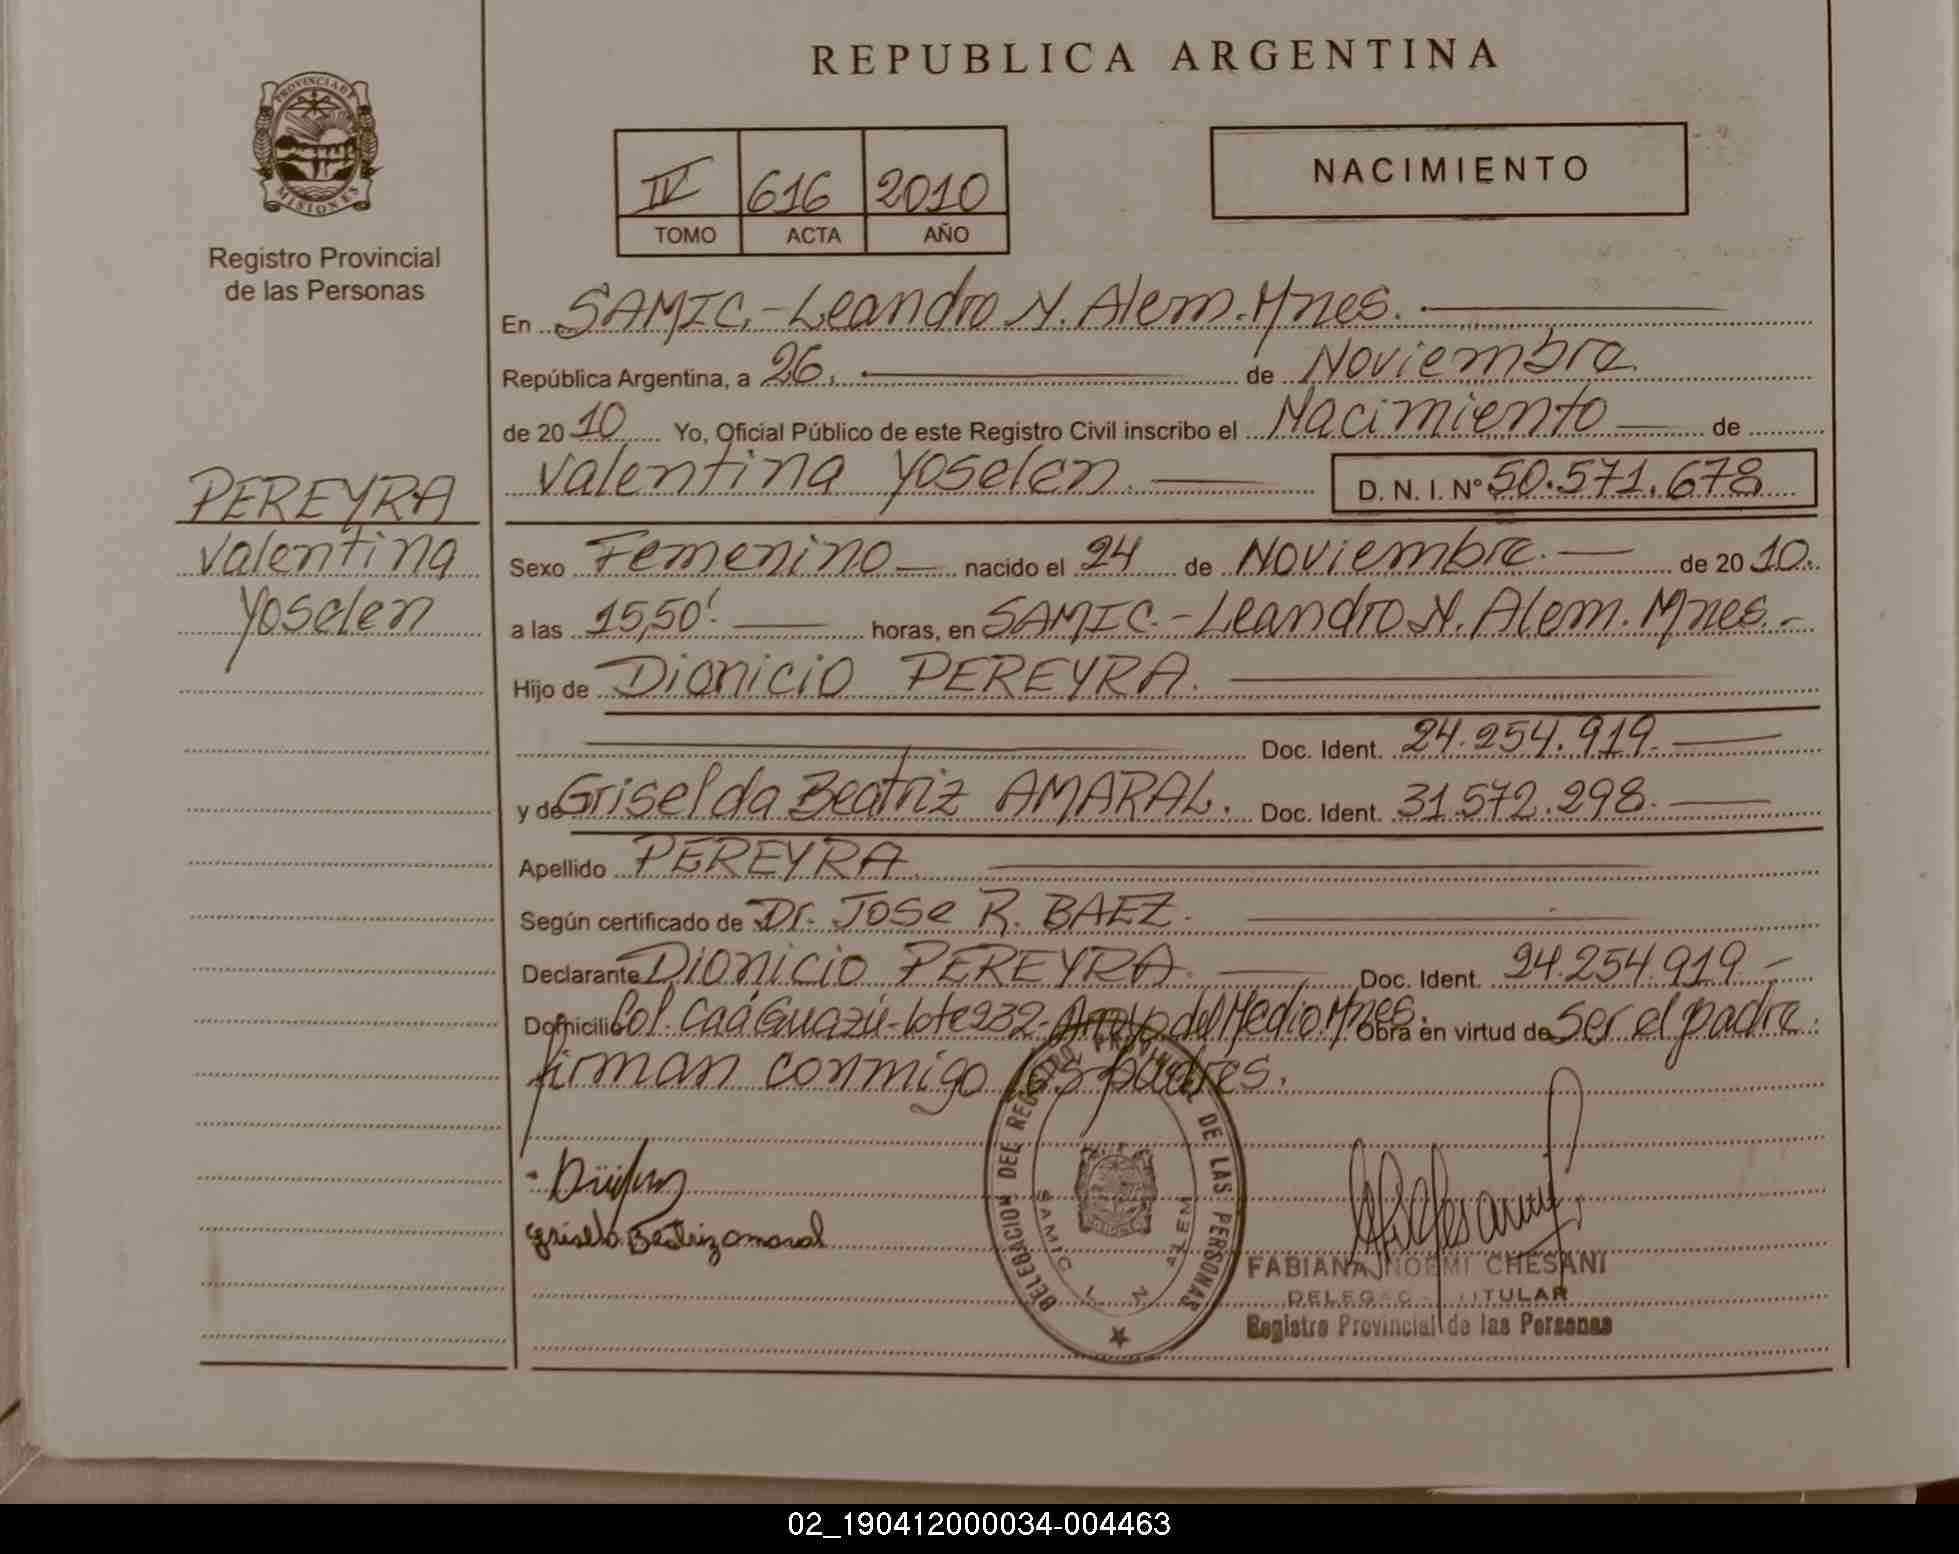 REPUBLICA ARGENTINA
PROVINCIA DE MISIONES
Registro Provincial
de las Personas
IV 616 2010
TOMO ACTA AÑO
NACIMIENTO
En SAMIC.-Leandro N. Alem. Mnes.
República Argentina, a 26. de Noviembre
de 2010 Yo, Oficial Público de este Registro Civil inscribo el Nacimiento de
Valentina Yoselen. D. N. I. Nº 50.571.678
PEREYRA
Valentina
Yoselen
Sexo Femenino nacido el 24 de Noviembre. de 2010.
a las 15,50'. horas, en SAMIC.-Leandro N. Alem. Mnes.-
Hijo de Dionicio PEREYRA.
Doc. Ident. 24.254.919.
y de Griselda Beatriz AMARAL. Doc. Ident. 31.572.298.
Apellido PEREYRA.
Según certificado de Dr. Jose R. BAEZ.
Declarante Dionicio PEREYRA. Doc. Ident. 24.254.919-
Domicilio Col. Caá Guazú-lote 232-Arroyo del Medio. Mnes. Obra en virtud de Ser el padre.
firman conmigo los padres.
Griselda Beatriz amaral
DELEGACION DEL REGISTRO PROVINCIAL DE LAS PERSONAS
SAMIC L. N. ALEM
FABIANA NOEMI CHESANI
TITULAR
Registro Provincial de las Personas
02_190412000034-004463